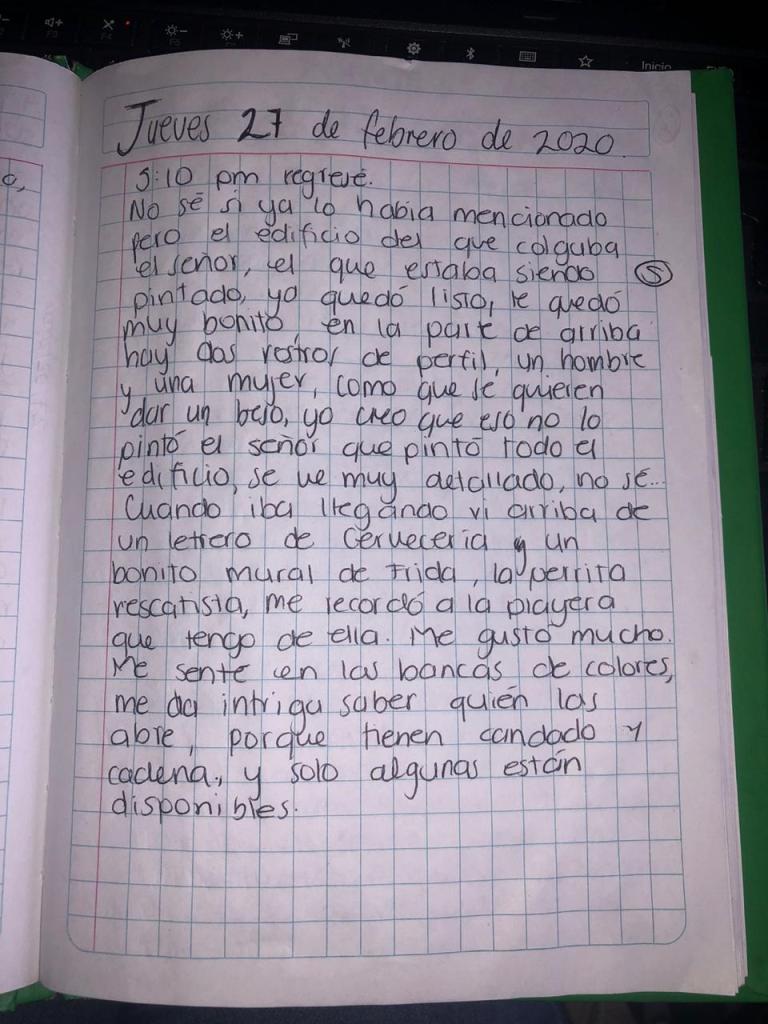 Jueves 27 de febrero de 2020.
5:10 pm regresé.
No sé si ya lo habia mencionado
pero el edificio del que colgaba
el señor, el que estaba siendo Ⓢ
pintado, ya quedó listo, le quedó
muy bonito, en la parte de arriba
hay dos rostros de perfil, un hombre
y una mujer, como que se quieren
dar un beso, yo creo que eso no lo
pintó el señor que pintó todo el
edificio, se ve muy detallado, no sé...
Cuando iba llegando vi arriba de
un letrero de Cerveceria y un
bonito mural de Frida, la perrita
rescatista, me recordó a la playera
que tengo de ella. Me gustó mucho.
Me sente en las bancas de colores,
me da intriga saber quién las
abre, porque tienen candado y
cadena, y solo algunas están
disponibles.
Inicio